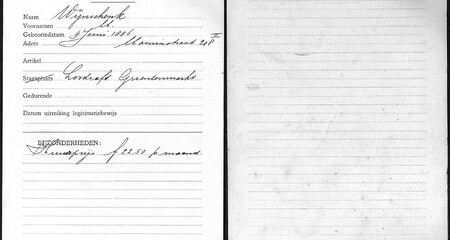 Naam Wijnschenk
Voornamen M.
Geboortedatum 9 Juni 1886
Adres 208 II
Artikel
Standplaats Groentenmarkt
Gedurende
Datum uitreiking legitimatiebewijs
BIJZONDERHEDEN:
Huurprijs f 22.50 p. maand.